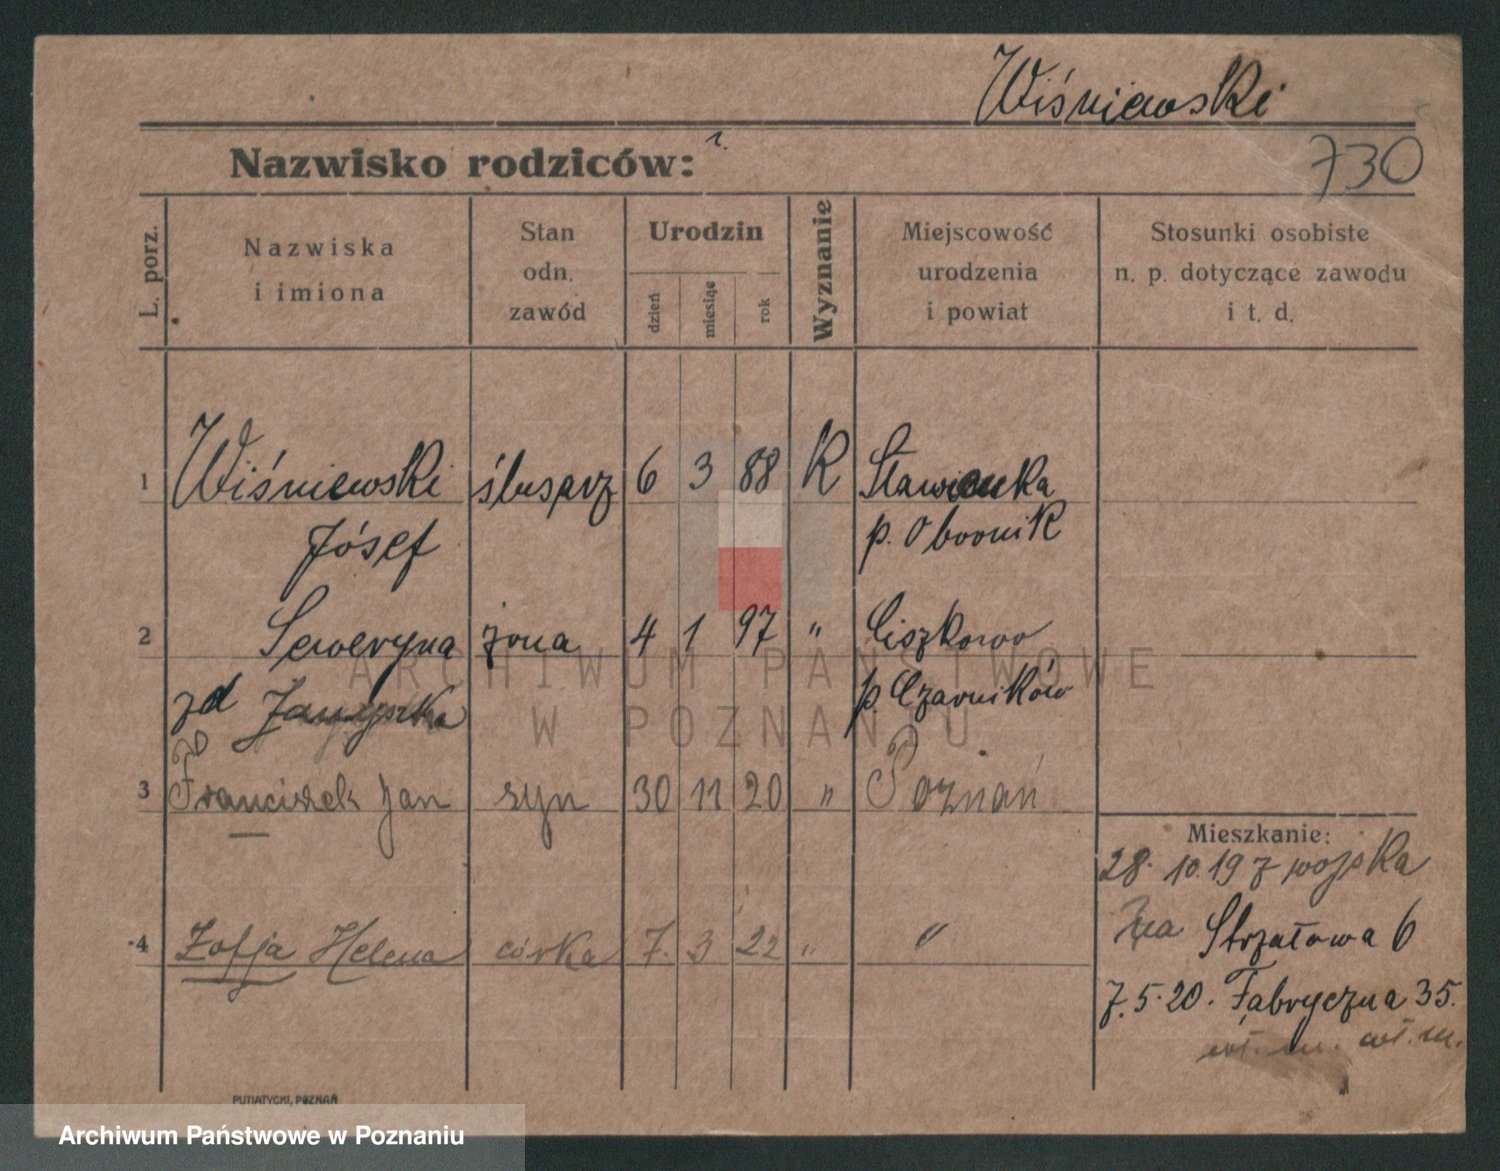 Wiśniewski
Nazwisko rodziców:
730
L. porz.
Nazwiska
i imiona
Stan
odn.
zawód
Urodzin
dzień
miesiąc
rok
Wyznanie
Miejscowość
urodzenia
i powiat
Stosunki osobiste
n. p. dotyczące zawodu
i t. d.
1 Wiśniewski ślusarz 6 3 88 K
Józef p. Obornik
2 Seweryna żona 4 1 97 " Ciszkowo
zd p Czarników
3 Franciszek Jan syn 30 11 20 " Poznań
Mieszkanie:
28. 10. 19 z wojska
4 Zofja Helena córka 7. 3 22 " "
Strzałowa 6
7. 5. 20. Fabryczna 35.
wł. m. wł. m.
PUTIATYCKI, POZNAŃ
ARCHIWUM PAŃSTWOWE
W POZNANIU
Archiwum Państwowe w Poznaniu